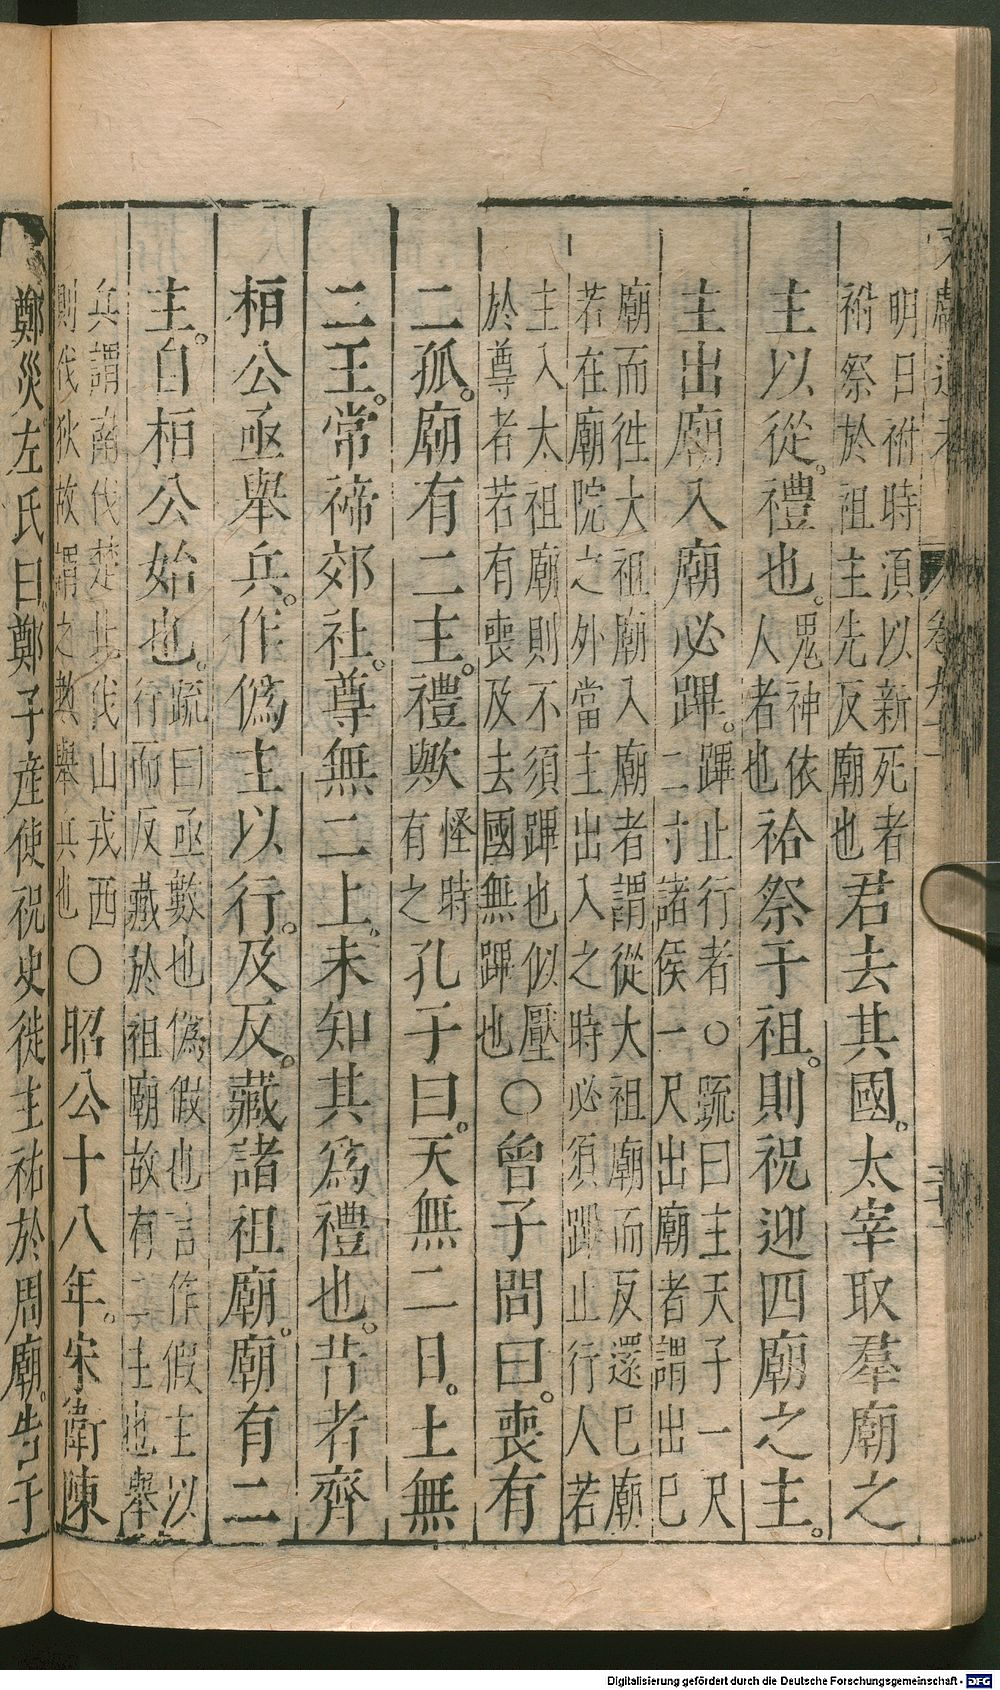 明日祔時須以新死者
祔祭於祖主先反廟也
君去其國。太宰取羣廟之
主以從。禮也。
鬼神依
人者也
祫祭于祖。則祝迎四廟之主。
主出廟入廟必蹕。
蹕止行者○疏曰主天子一尺
二寸諸侯一尺出廟者謂出巳
廟而徃大祖廟入廟者謂從大祖廟而反還巳廟
若在廟院之外當主出入之時必須蹕止行人若
主入太祖廟則不須蹕也似壓
於尊者若有喪及去國無蹕也
○曾子問曰。喪有
二孤。廟有二主。禮歟
怪時
有之
孔子曰。天無二日。土無
二王。常禘郊社。尊無二上。未知其爲禮也。昔者齊
桓公亟舉兵。作偽主以行。及反。藏諸祖廟。廟有二
主。自桓公始也。
疏曰亟數也偽假也言作假主以
行而反藏於祖廟故有二主也舉
兵謂南伐楚北伐山戎西
則伐狄故謂之數舉兵也
○昭公十八年。宋衛陳
鄭災。左氏曰。鄭子產使祝史徙主祏於周廟。告于
Digitalisierung gefördert durch die Deutsche Forschungsgemeinschaft - DFG